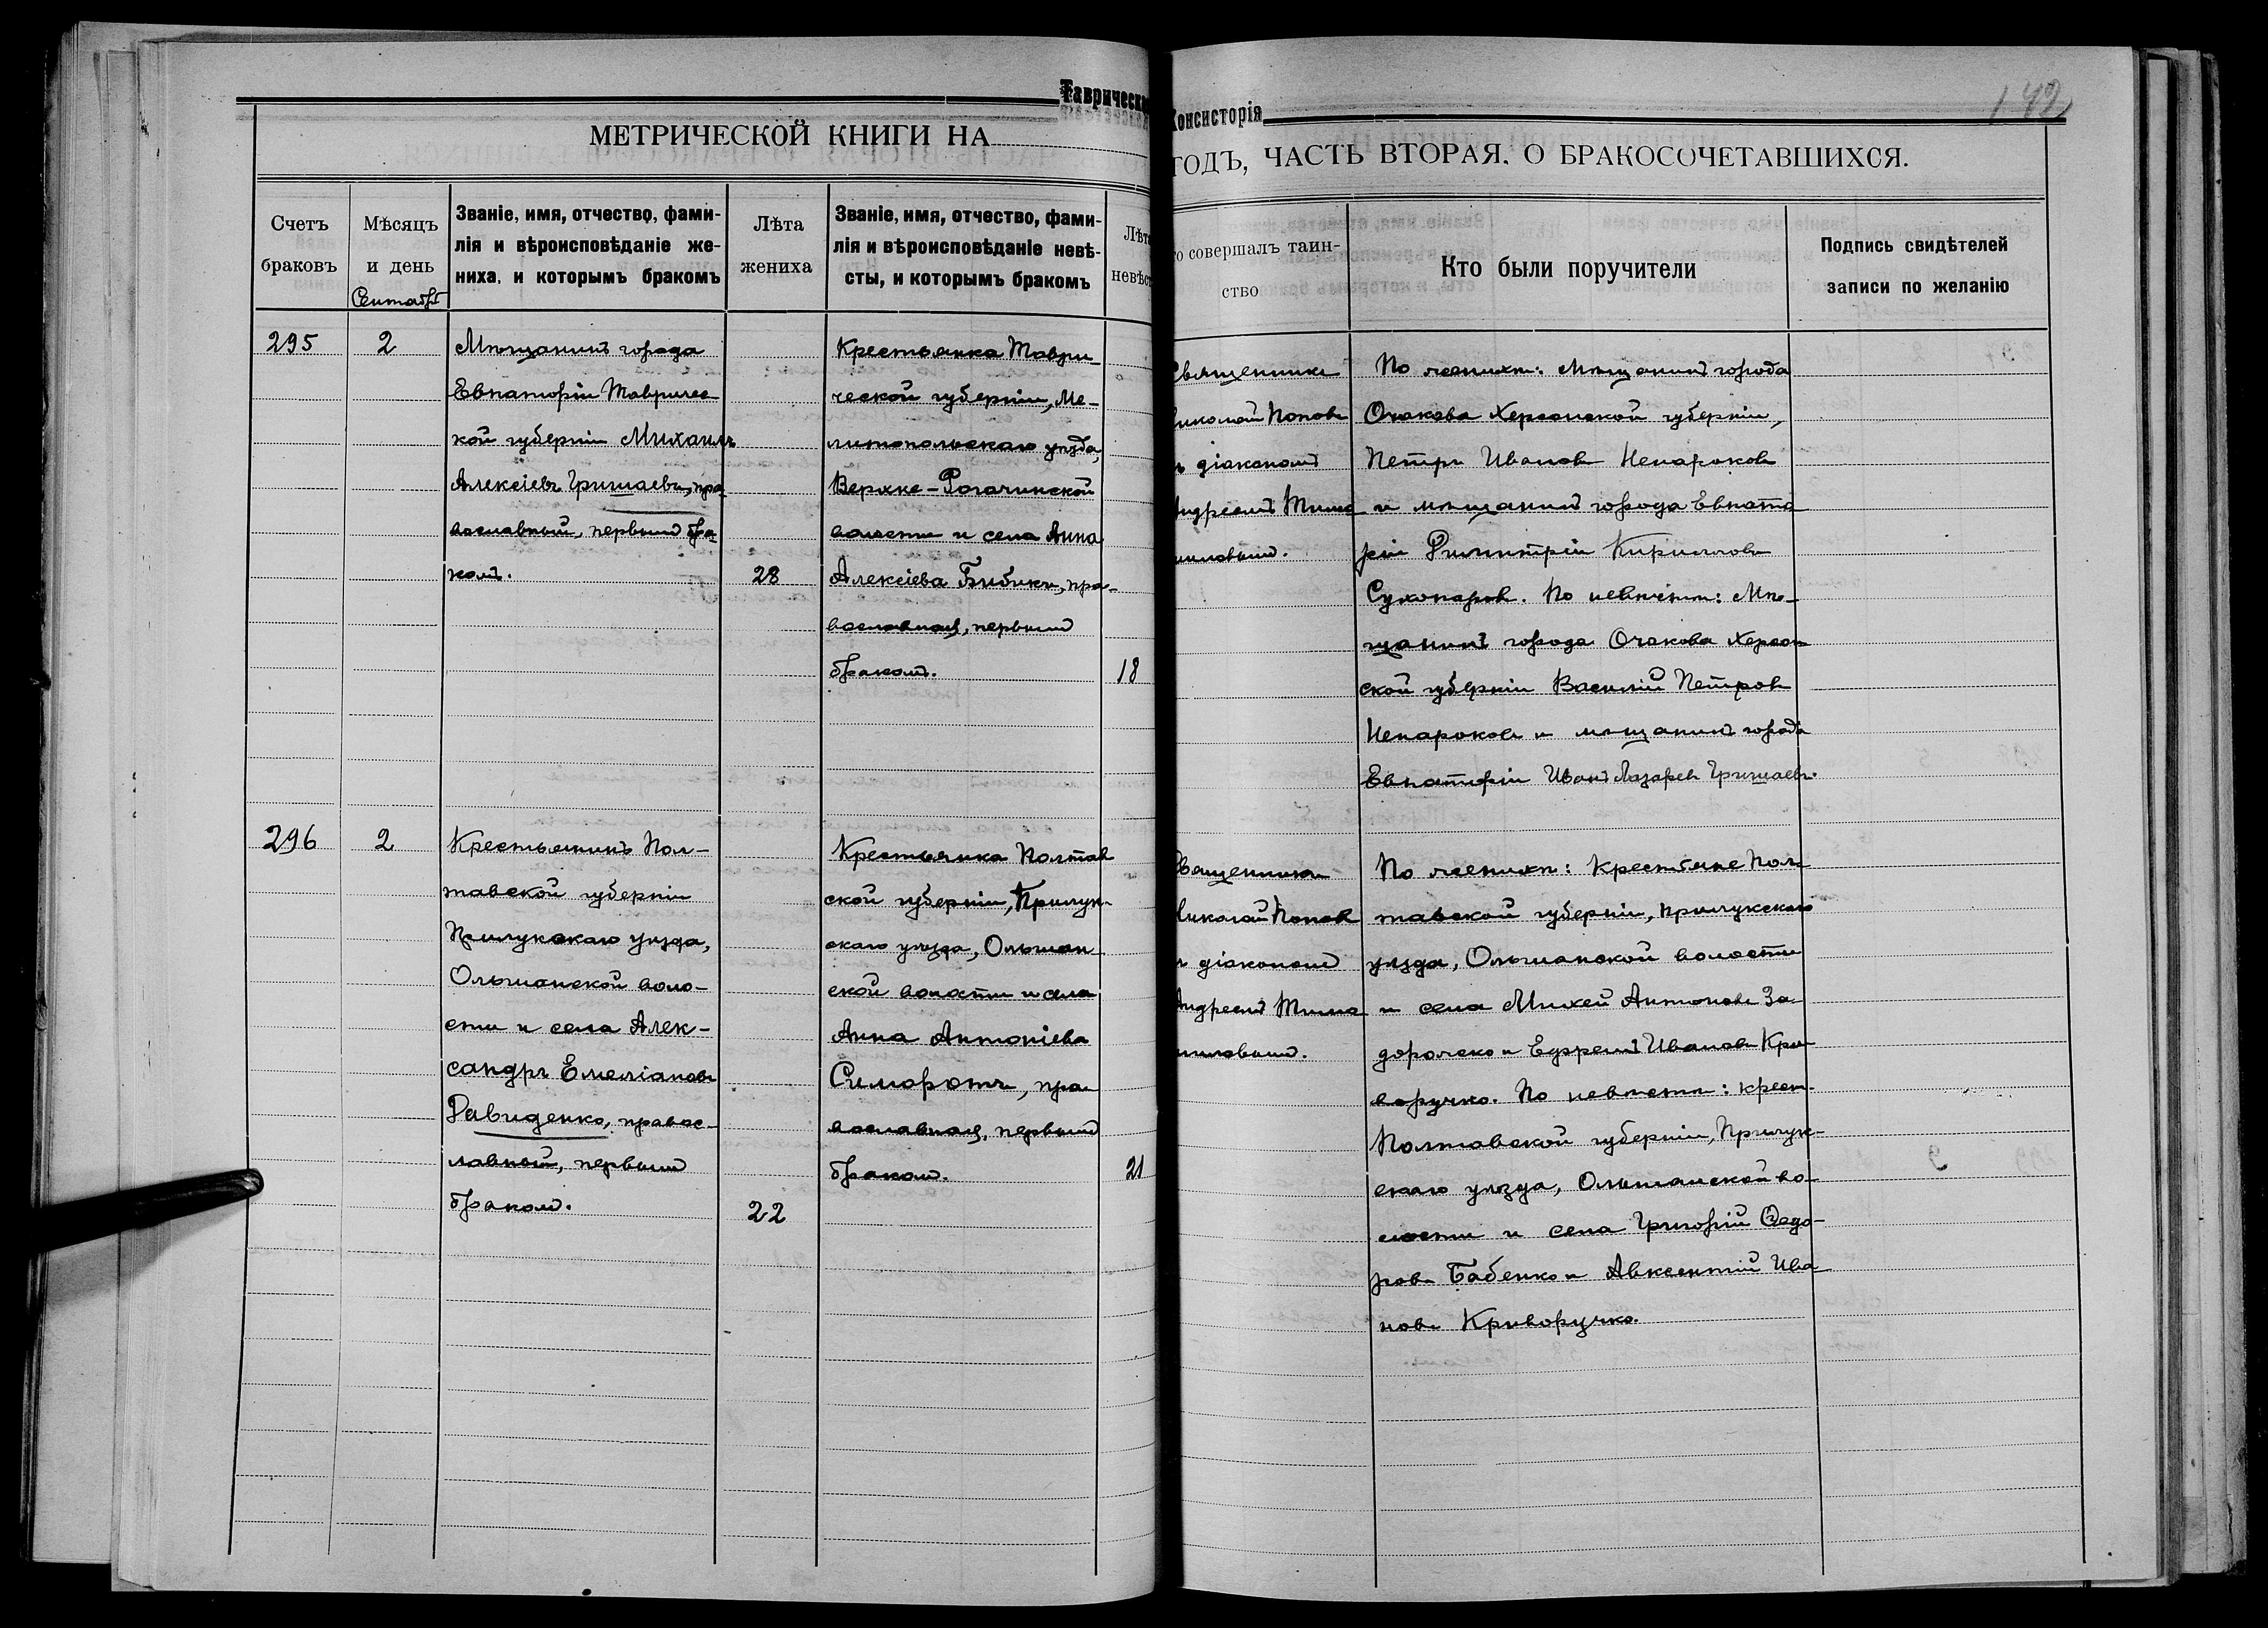 Таврическ
Консисторія
142
МЕТРИЧЕСКОЙ КНИГИ НА
ГОДЪ, ЧАСТЬ ВТОРАЯ. О БРАКОСОЧЕТАВШИХСЯ.
Счетъ
браковъ
Мѣсяцъ
и день
Сентябрь
Званіе, имя, отчество, фами-
лія и вѣроисповѣданіе же-
ниха, и которымъ бракомъ
Лѣта
жениха
Званіе, имя, отчество, фами-
лія и вѣроисповѣданіе невѣ-
сты, и которымъ бракомъ
Лѣта
невѣс
о совершалъ таин-
ство
Кто были поручители
Подпись свидѣтелей
записи по желанію
295
2
Мѣщанинъ города
Евпаторіи Тавричес
кой губерніи Михаилъ
Алексіевъ Гришаевъ, пра
вославный, первымъ бра
комъ.
28
Крестьянка Таври
ческой губерніи, Ме-
литопольскаго уѣзда,
Верхне-Рогачикской
волости и села Анна
Алексіева Бибикъ, пра-
вославная, первымъ
бракомъ.
18
Священникъ
иколай Поповъ
ъ діакономъ
Андреемъ Тимо
иловымъ.
По женихѣ: мѣщанинъ города
Очакова Херсонской губерніи,
Петръ Ивановъ Ненароковъ
и мѣщанинъ города Евпато
ріи Димитрій Кирилловъ
Сухопаровъ. По невѣстѣ: Мѣ-
щанинъ города Очакова Херсон
ской губерніи Василій Петровъ
Ненароковъ и мѣщанинъ города
Евпаторіи Иванъ Лазаревъ Гришаевъ.
296
2
Крестьянинъ Пол-
тавской губерніи
Прилукскаго уѣзда,
Ольшанской воло-
сти и села Алек-
сандръ Емеліановъ
Давиденко, правос-
лавный, первымъ
бракомъ.
22
Крестьянка Полтав
ской губерніи, Прилук-
скаго уѣзда, Ольшан-
ской волости и села
Анна Антоніева
Симоротъ, пра-
вославная, первымъ
бракомъ.
21
Священникъ
Николай Поповъ
ъ діакономъ
Андреемъ Тимо
иловымъ.
По женихѣ: Крестьяне Пол-
тавской губерніи, Прилукскаго
уѣзда, Ольшанской волости
и села Михей Антоновъ За
дорожко и Ефремъ Ивановъ Кри
воручко. По невѣстѣ: крест.
Полтавской губерніи, Прилук-
скаго уѣзда, Ольшанской во-
лости и села Григорій Ѳедо-
ровъ Бабенко и Авксентій Ива
новъ Криворучко.